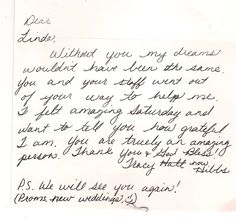 Dear
Linda,
Without you my dreams
wouldn't have been the same.
You and your staff went out
of your way to help me.
I felt amazing Saturday and
want to tell you how grateful
I am. You are truely an amazing
person. Thank You & God Bless
Tracy Hatt now
Gibbs
P.S. We will see you again!
(Proms, new weddings, :)